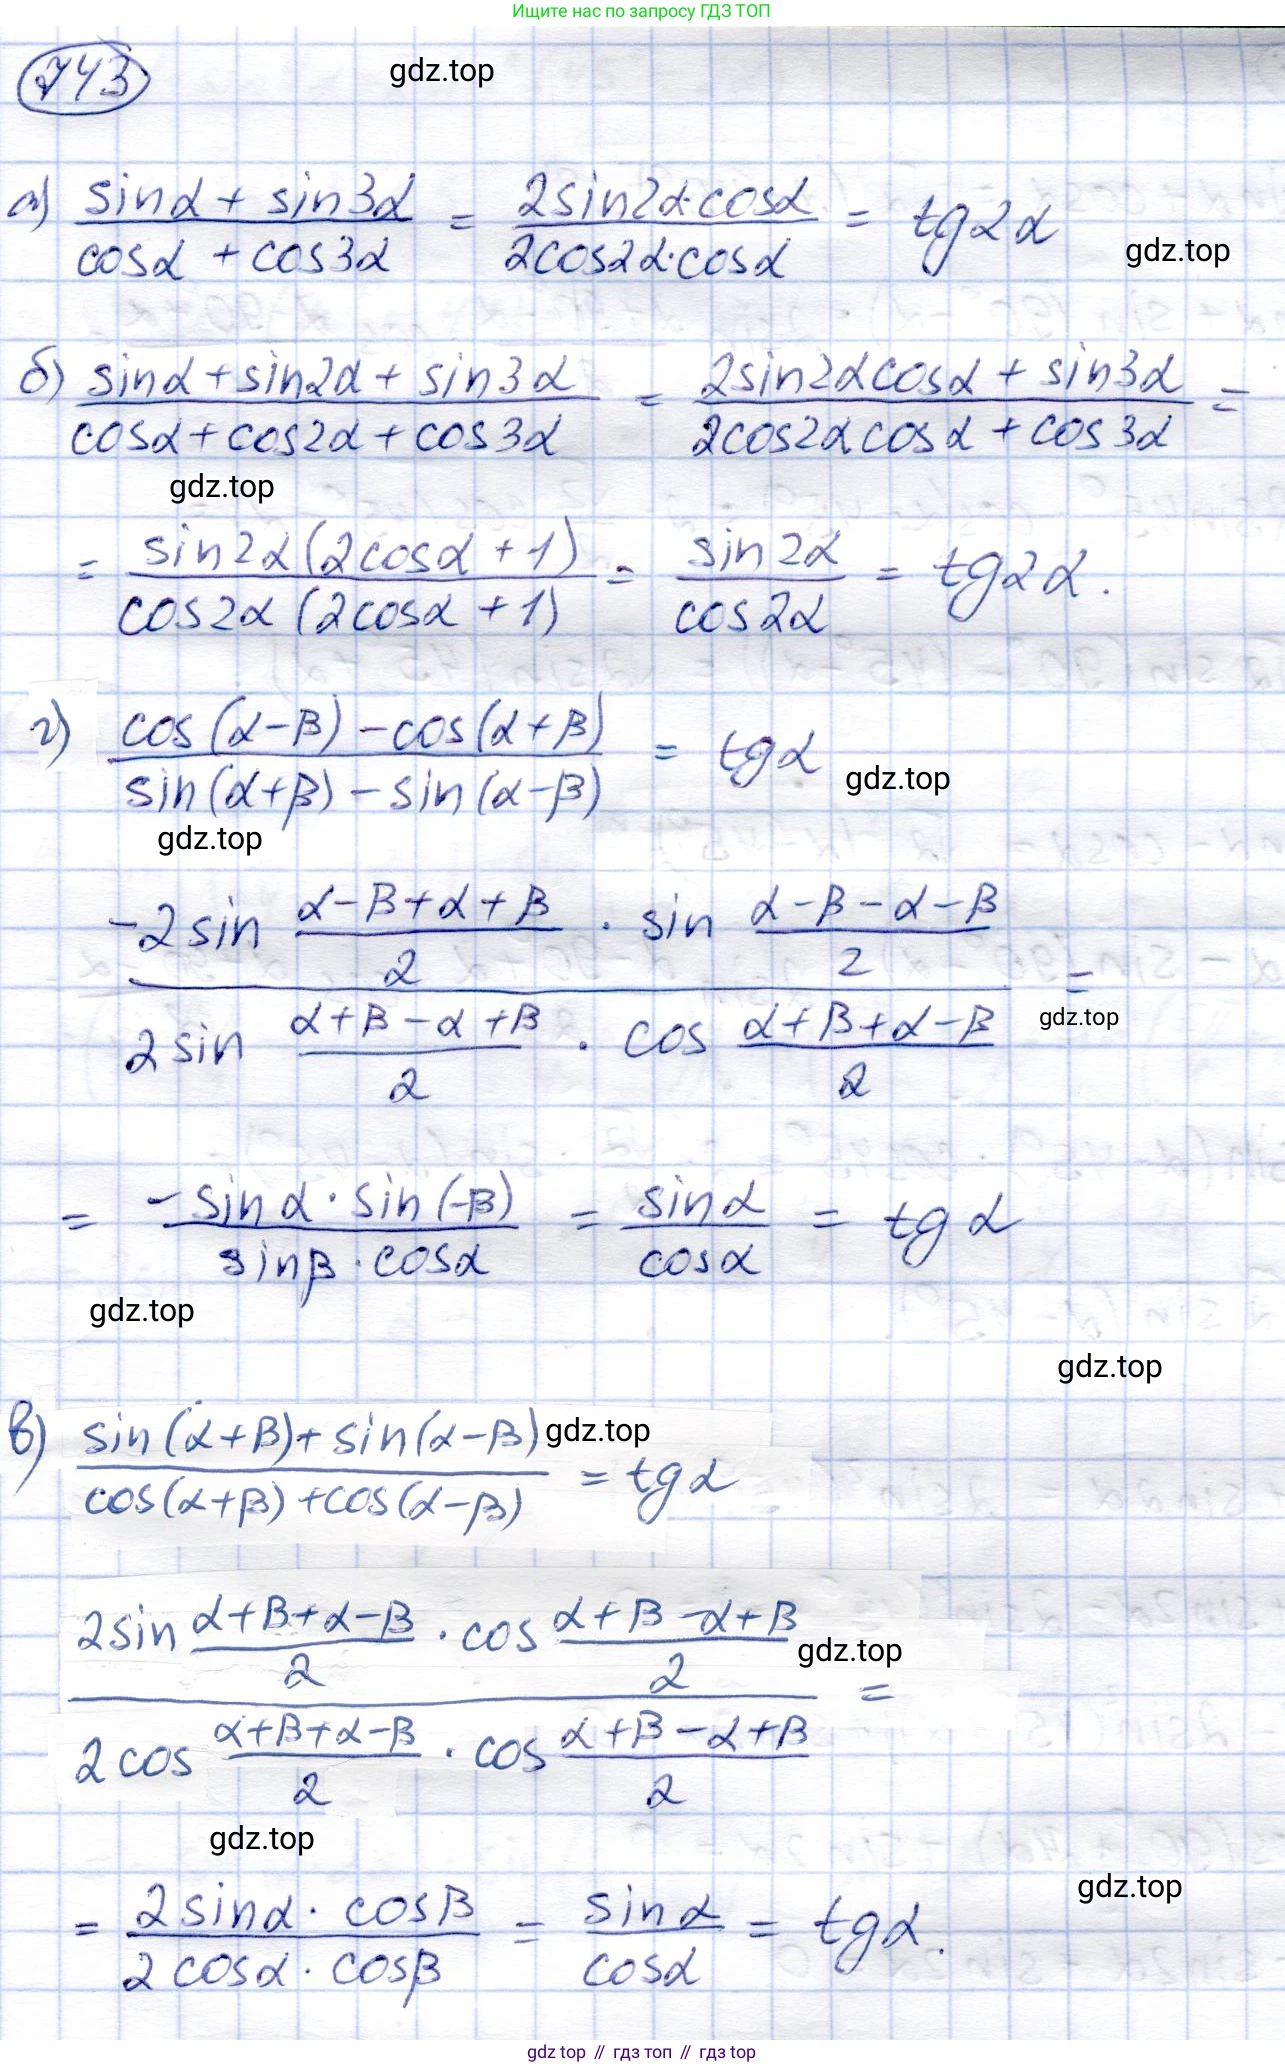 Ищите нас по запросу ГДЗ ТОП
743
gdz.top
а) (sinα + sin3α)/(cosα + cos3α) = (2sin2α·cosα)/(2cos2α·cosα) = tg2α
gdz.top
б) (sinα + sin2α + sin3α)/(cosα + cos2α + cos3α) = (2sin2αcosα + sin3α)/(2cos2αcosα + cos3α) =
gdz.top
= (sin2α(2cosα + 1))/(cos2α(2cosα + 1)) = sin2α/cos2α = tg2α.
г) (cos(α-β) - cos(α+β))/(sin(α+β) - sin(α-β)) = tgα
gdz.top
gdz.top
(-2sin (α-β+α+β)/2 · sin (α-β-α-β)/2)/(2sin (α+β-α+β)/2 · cos (α+β+α-β)/2) =
gdz.top
= (-sinα·sin(-β))/(sinβ·cosα) = sinα/cosα = tgα
gdz.top
gdz.top
в) (sin(α+β)+sin(α-β))/(cos(α+β)+cos(α-β)) = tgα
gdz.top
(2sin (α+β+α-β)/2 · cos (α+β-α+β)/2)/(2cos (α+β+α-β)/2 · cos (α+β-α+β)/2) =
gdz.top
gdz.top
gdz.top
= (2sinα·cosβ)/(2cosα·cosβ) = sinα/cosα = tgα.
gdz.top // гдз топ // гдз top